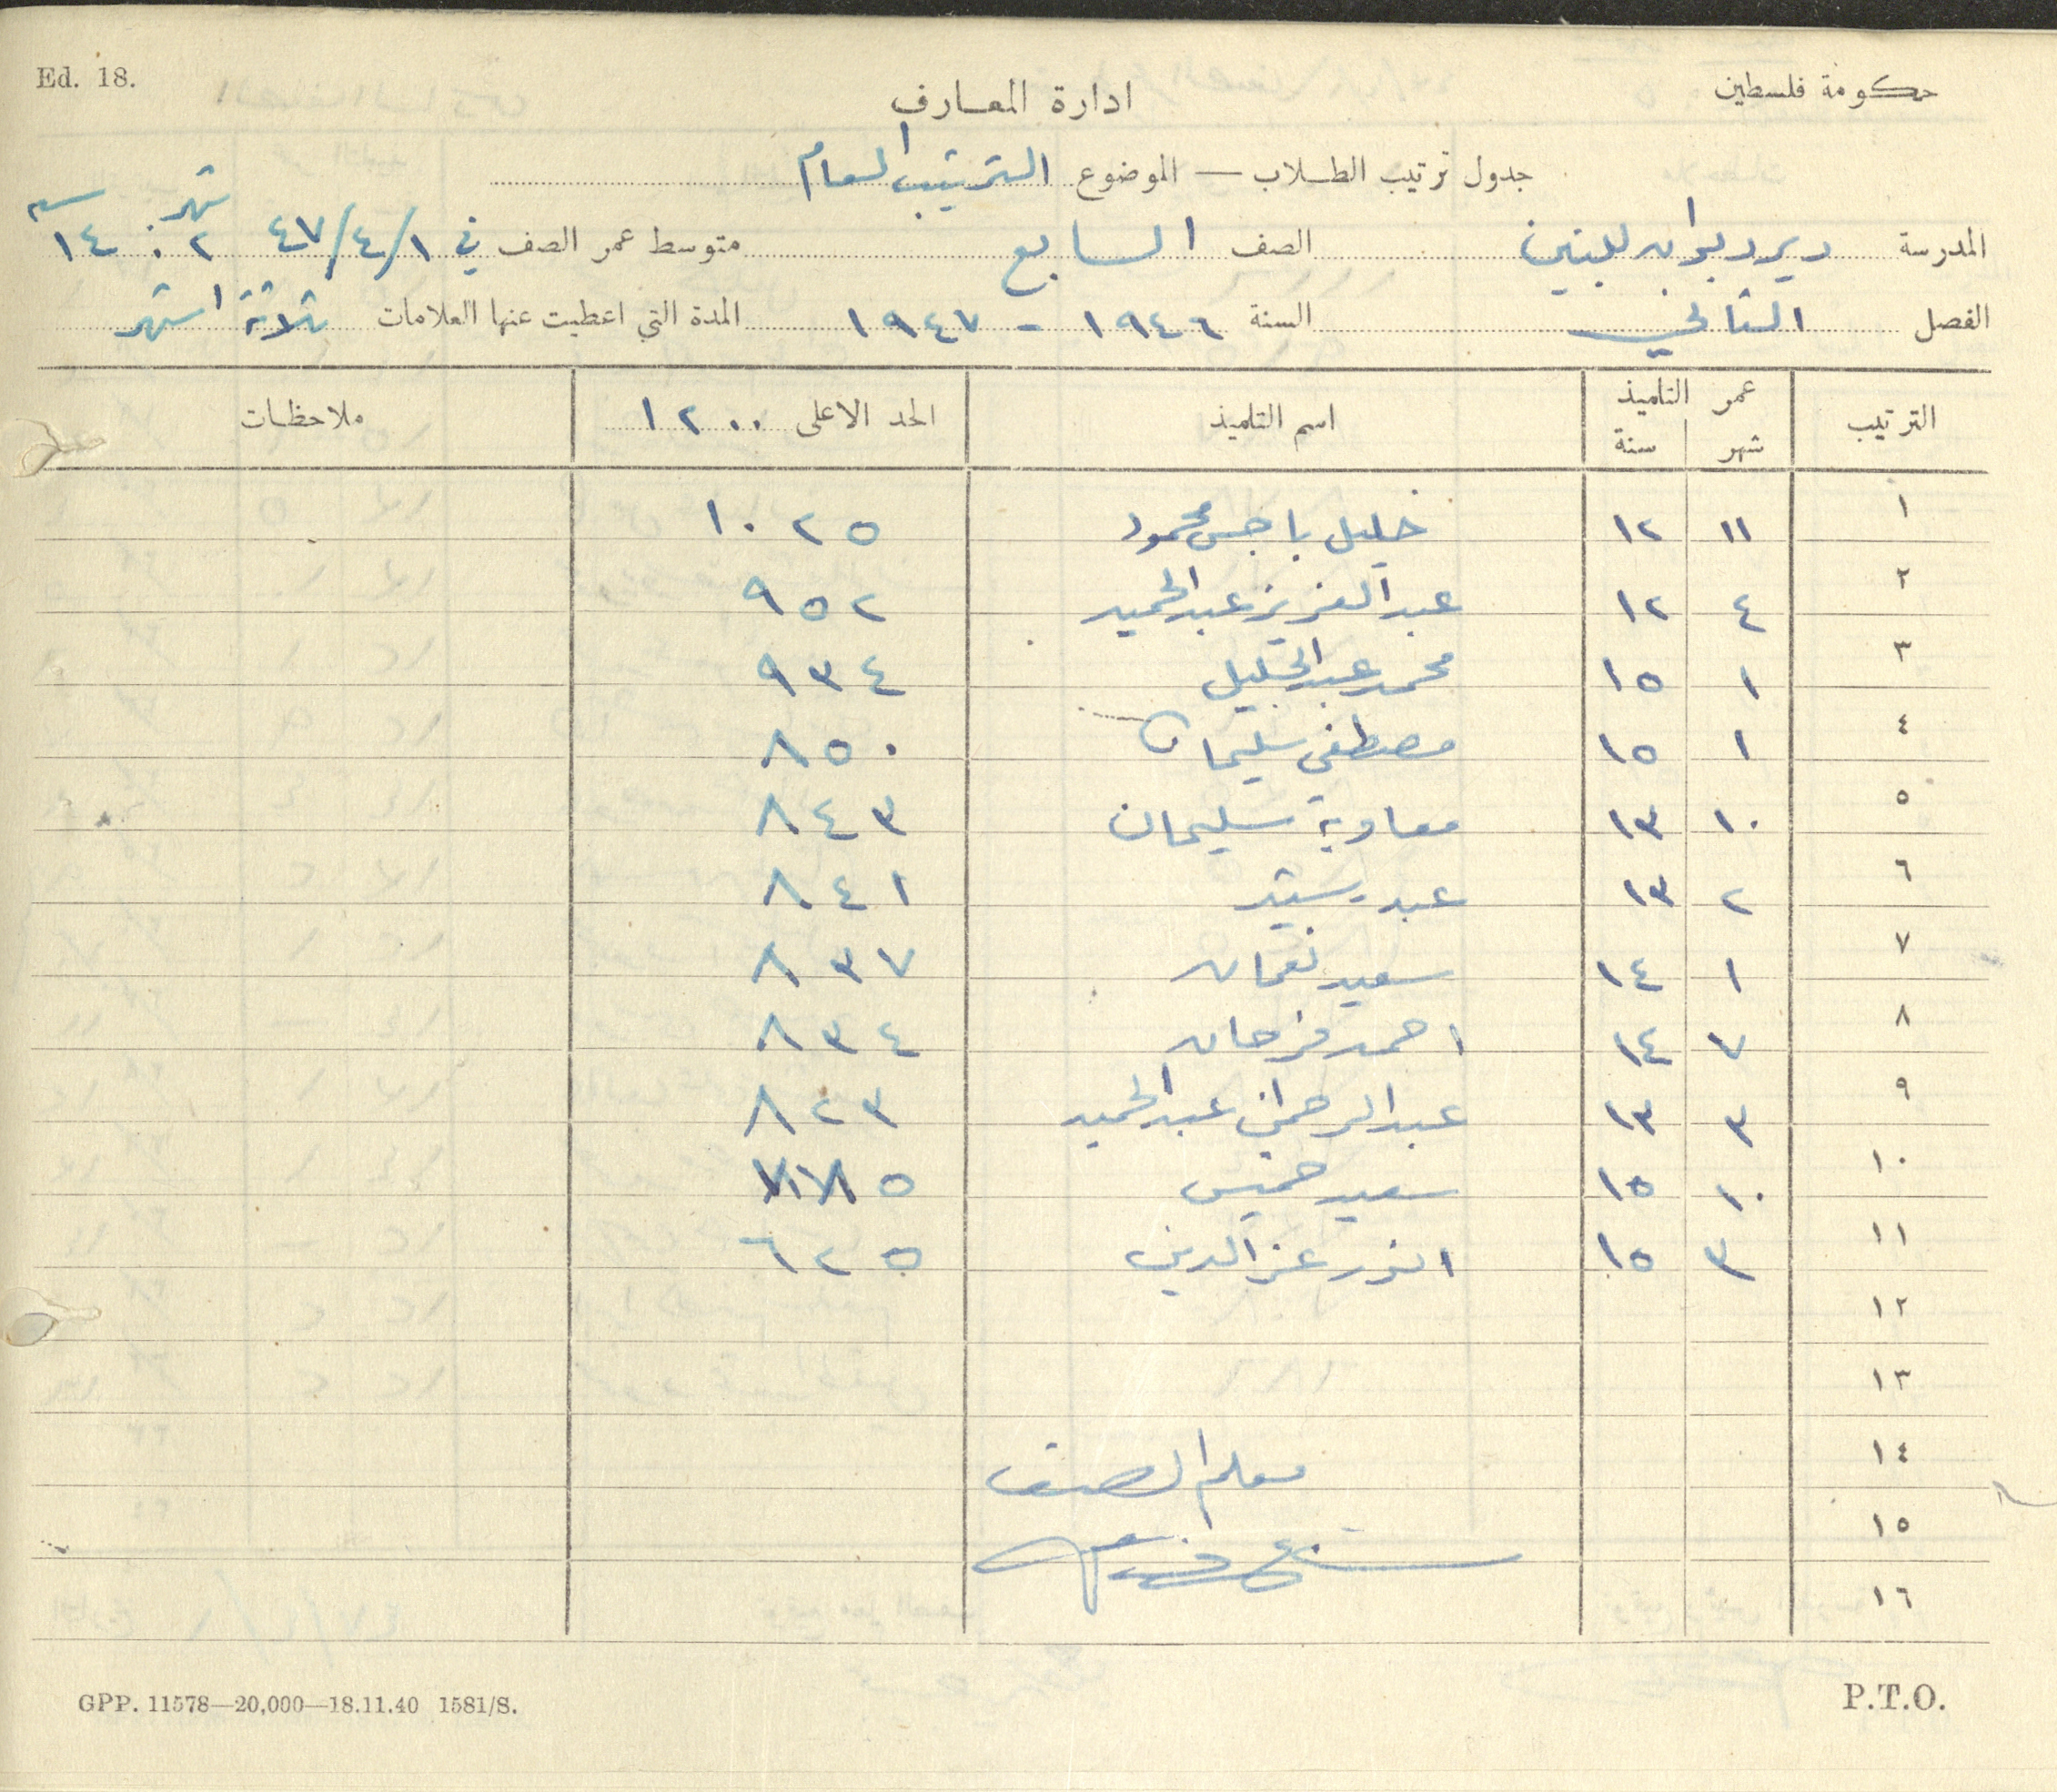 Ed. 18.
حكومة فلسطين
ادارة المعارف
جدول ترتيب الطلاب — الموضوع الترتيب العام
المدرسة دير دبوان للبنين الصف السابع متوسط عمر الصف في ٤٧/٤/١ شهر ٢ سنة ١٤
الفصل الثاني السنة ١٩٤٦ - ١٩٤٧ المدة التي اعطيت عنها العلامات ثلاثة اشهر
الترتيب عمر التلميذ شهر سنة اسم التلميذ الحد الاعلى ١٢٠٠ ملاحظات
١ ١١ ١٢ خليل باجس محمود ١٠٢٥
٢ ٤ ١٢ عبد العزيز عبد الحميد ٩٥٢
٣ ١ ١٥ محمد عبد الجليل ٩٣٤
٤ ١ ١٥ مصطفى سليمان ٨٥٠
٥ ١٠ ١٣ معاوية سليمان ٨٤٣
٦ ٢ ١٣ عبد رشيد ٨٤١
٧ ١ ١٤ سعيد نعمان ٨٣٧
٨ ٧ ١٤ احمد فرحان ٨٣٤
٩ ٣ ١٣ عبد الرحمن عبد الحميد ٨٢٣
١٠ ١٠ ١٥ سعيد خميس ٧٨٥
١١ ٣ ١٥ انور عز الدين ٦٢٥
١٢
١٣
١٤ معلم الصف
١٥
١٦
GPP. 11578—20,000—18.11.40 1581/S.
P.T.O.